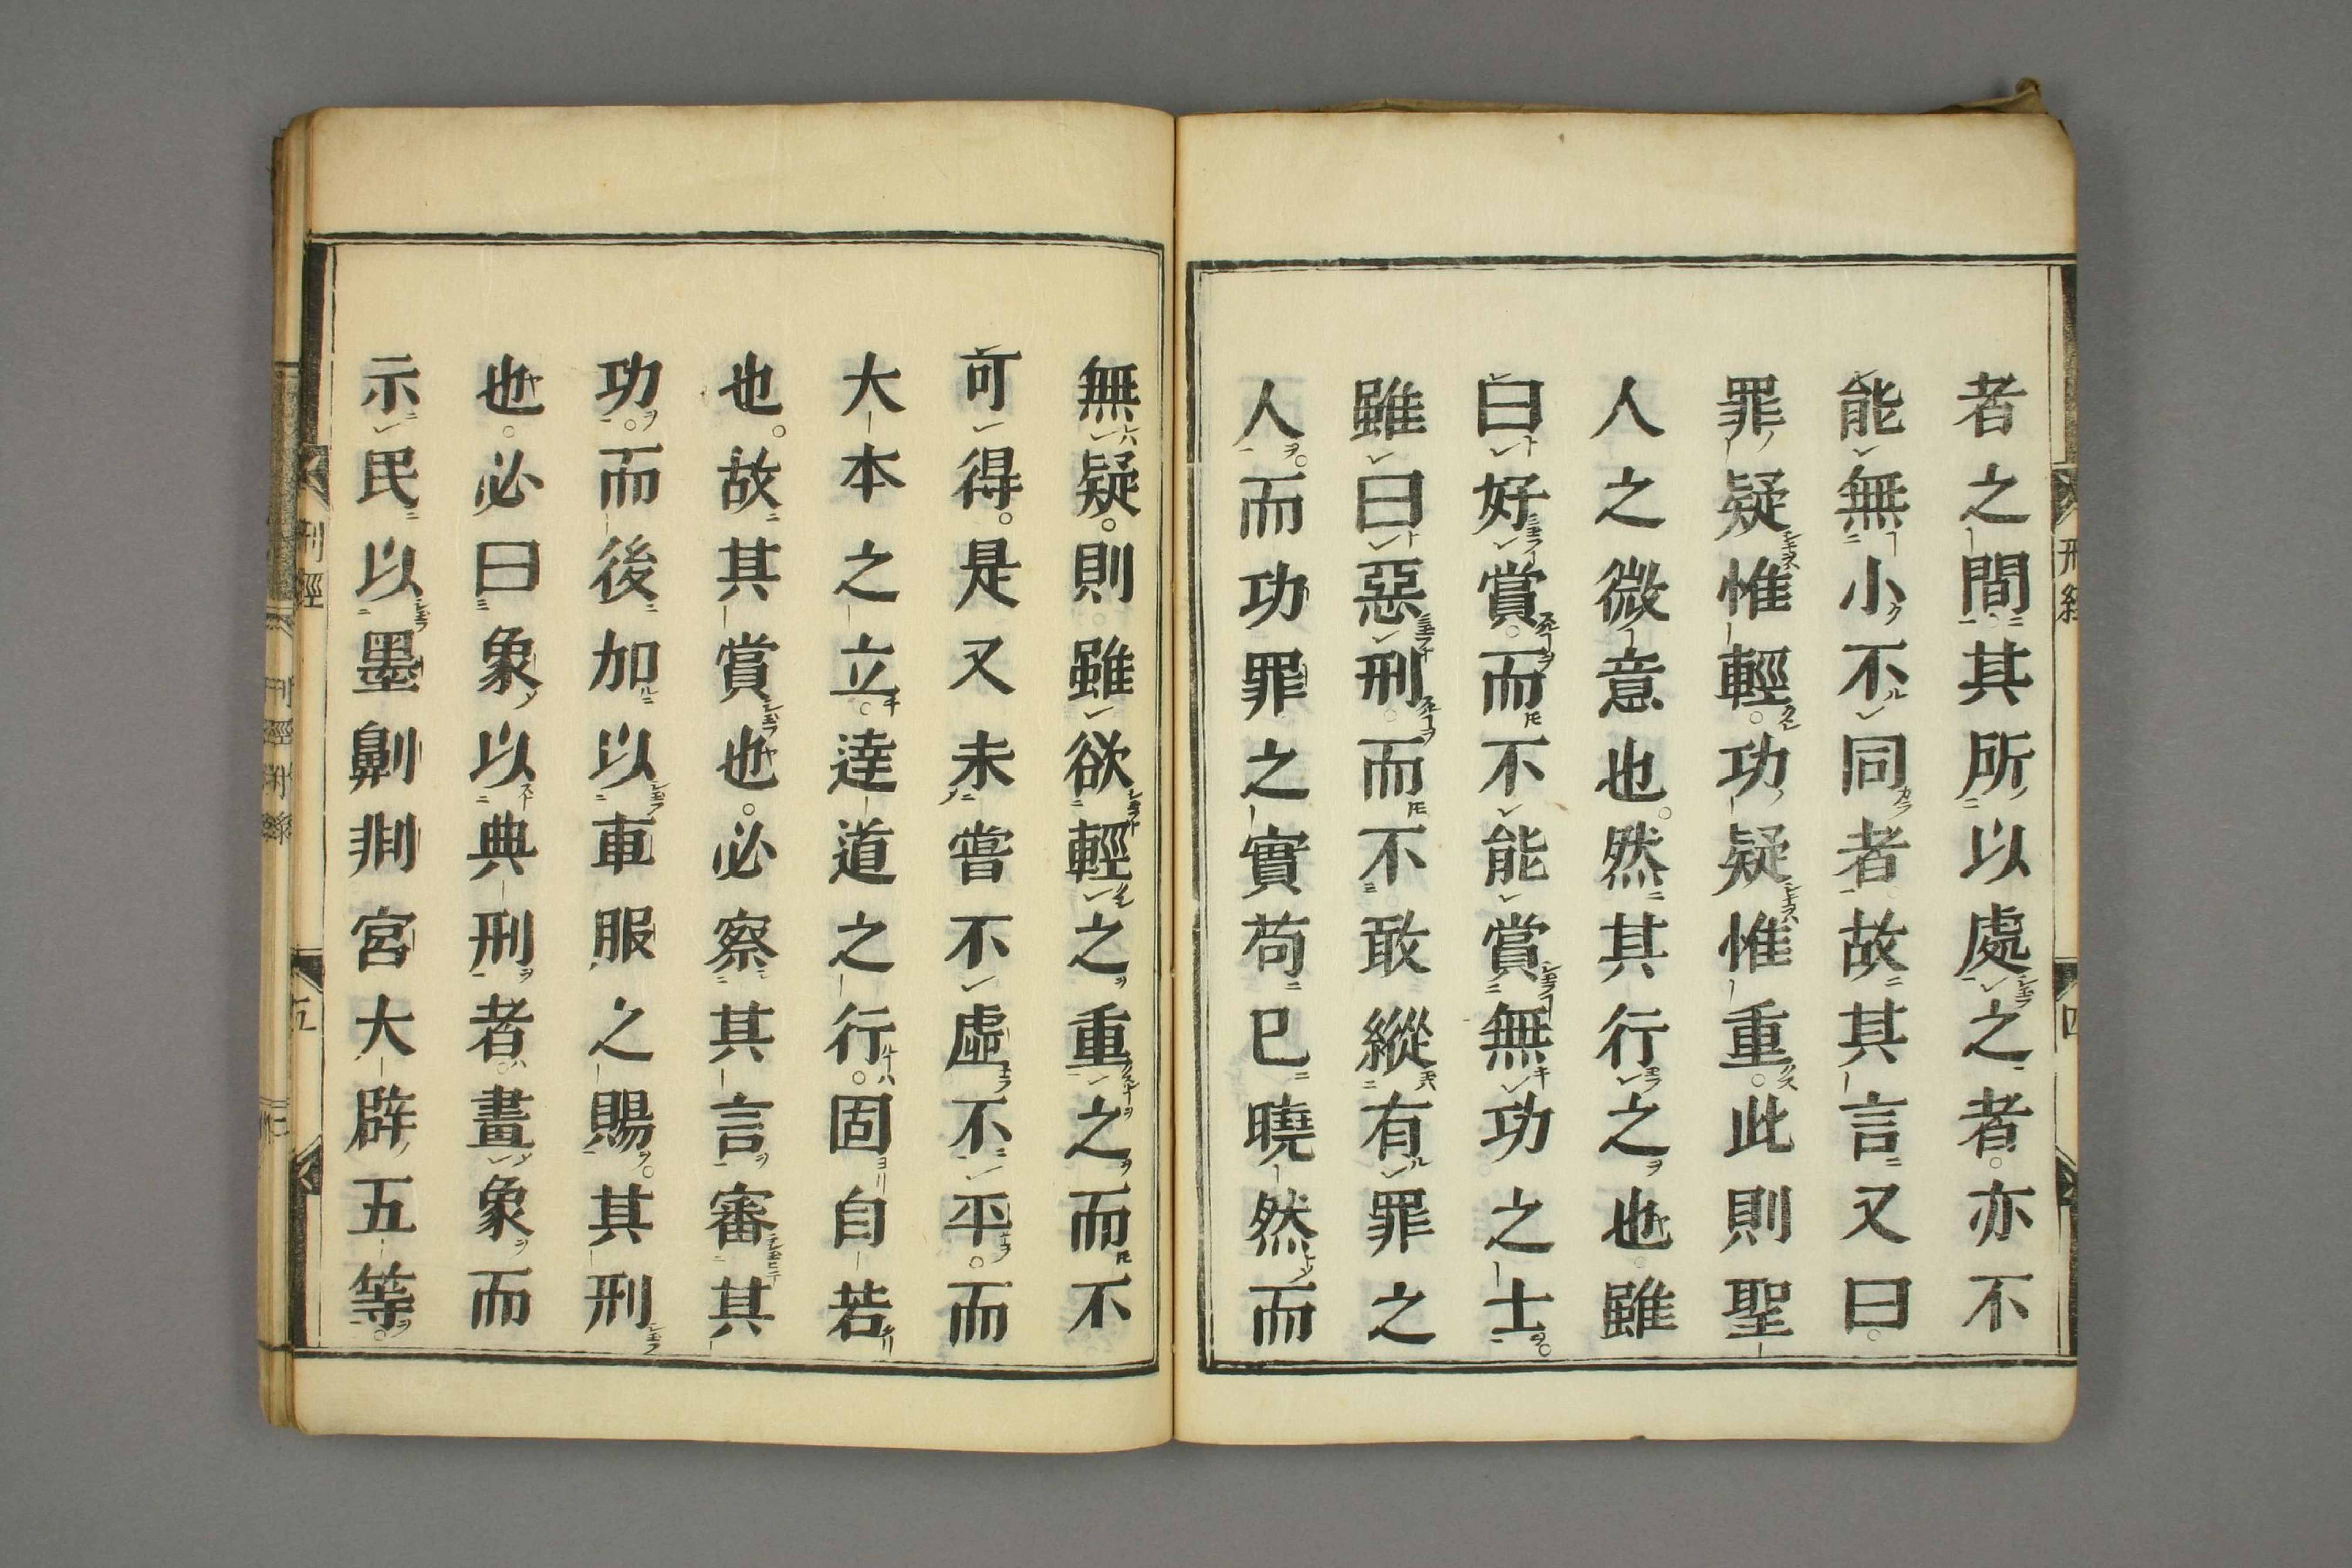 者之間其所以處之者亦不
能無小不同者故其言又曰
罪疑惟輕功疑惟重此則聖
人之微意也然其行之也雖
曰好賞而不能賞無功之士
雖曰惡刑而不敢縱有罪之
人而功罪之實苟已曉然而
無疑則雖欲輕之重之而不
可得是又未嘗不虛不平而
大本之立達道之行固自若
也故其賞也必察其言審其
功而後加以車服之賜其刑
也必曰象以典刑者畫象而
示民以墨劓剕宮大辟五等
刑經
五
四